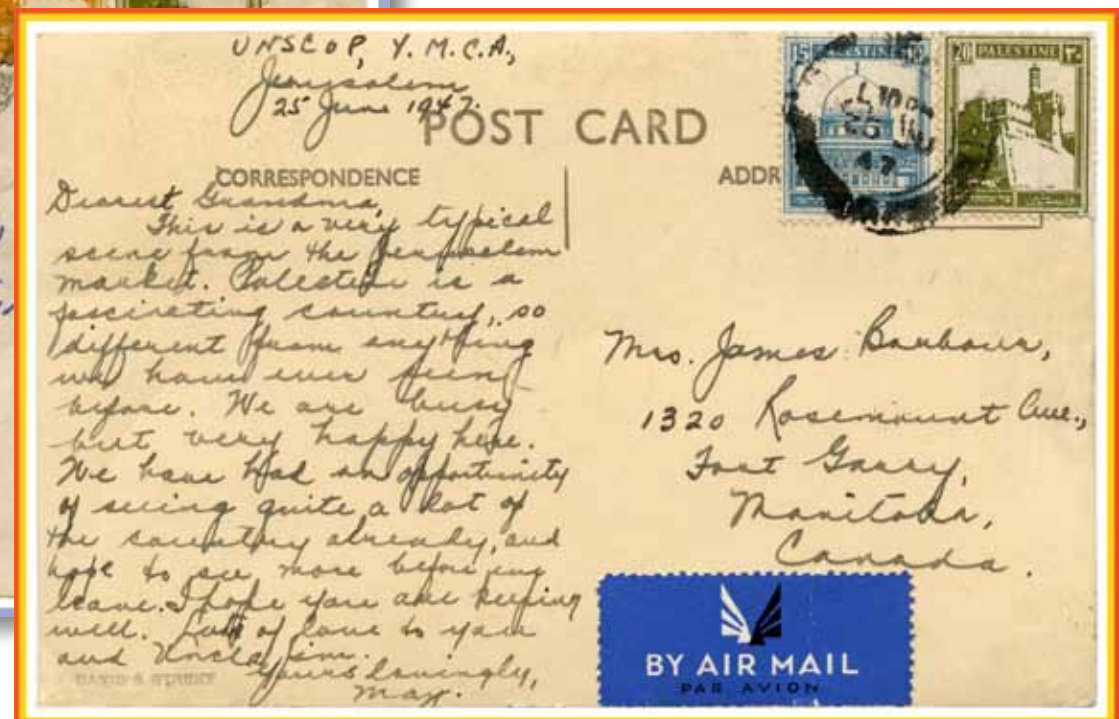 UNSCOP, Y.M.C.A.,
Jerusalem
25 June 1947.
POST CARD
CORRESPONDENCE
ADDR
15 PALESTINE
20 PALESTINE ٢٠
Dearest Grandma,
This is a very typical
scene from the Jerusalem
market. Palestine is a
fascinating country, so
different from anything
we have ever seen
before. We are busy
but very happy here.
We have had an opportunity
of seeing quite a lot of
the country already, and
hope to see more before we
leave. I hope you are keeping
well. Lots of love to you
and Uncle Jim.
Yours lovingly,
May.
DAVID S STREET
Mrs. James Barbour,
1320 Rosemount Ave.,
Fort Garry,
Manitoba,
Canada.
BY AIR MAIL
PAR AVION